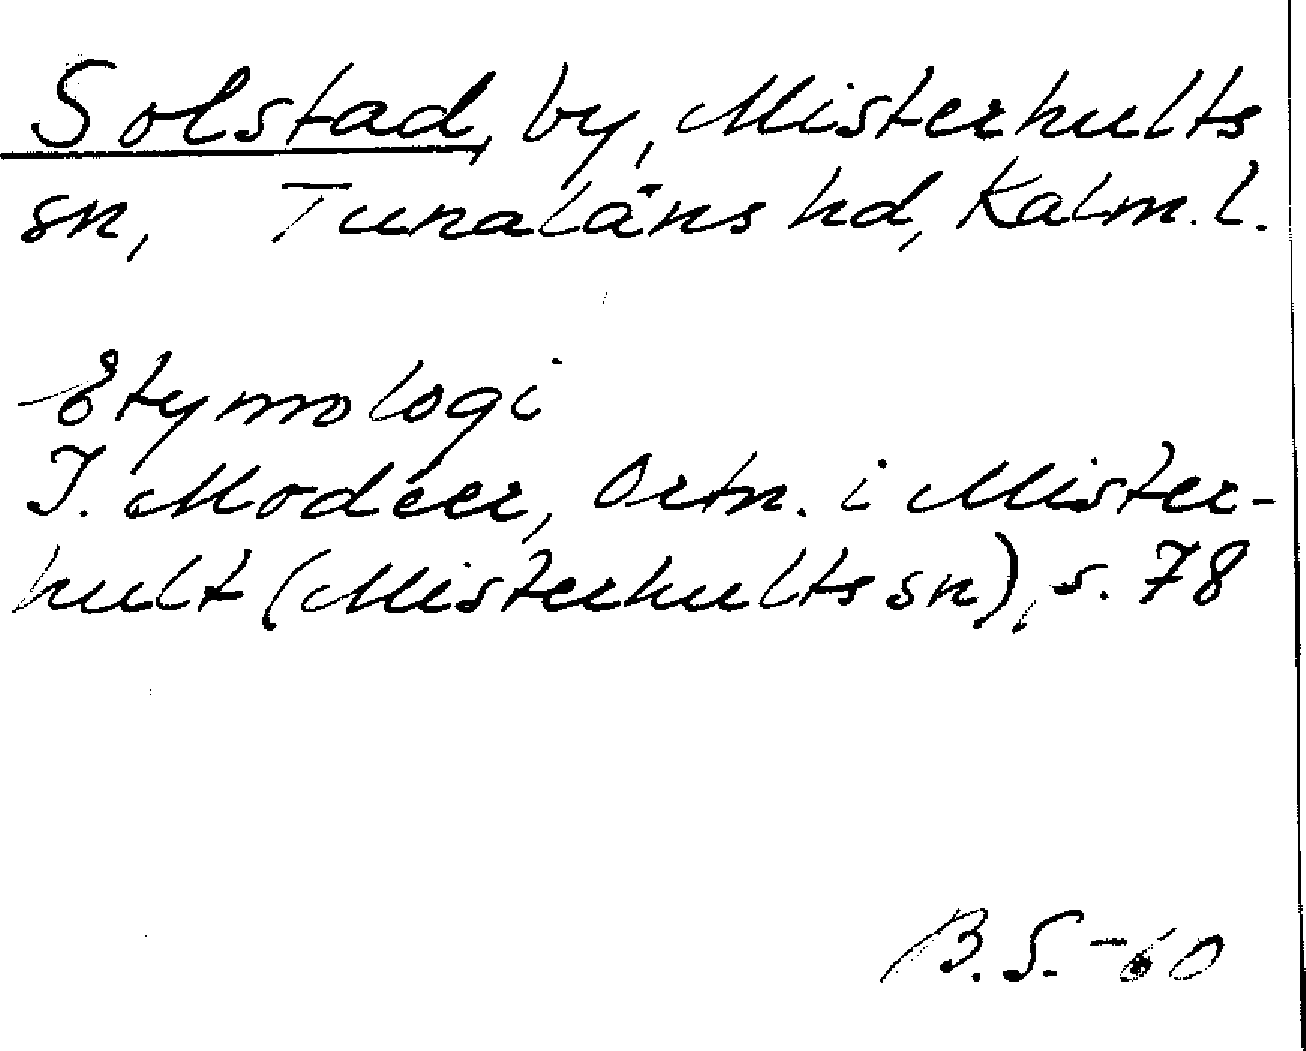 Solstad, by, Misterhults
sn, Tunaläns hd, Kalm. l.
Etymologi
I. Modéer, Ortn. i Mister-
hult (Misterhults sn), s. 78
B.S. -60